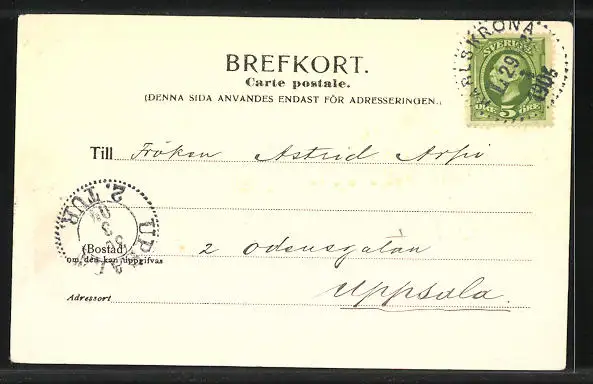 BREFKORT.
Carte postale.
(DENNA SIDA ANVANDES ENDAST FÖR ADRESSERINGEN.)
KARLSKRONA
29
SVERIGE
5 ÖRE
Till Fröken Astrid Arpi
2. TUR
UPSALA
3
(Bostad)
om den kan uppgifvas
2 Odensgatan
Adressort
Uppsala.